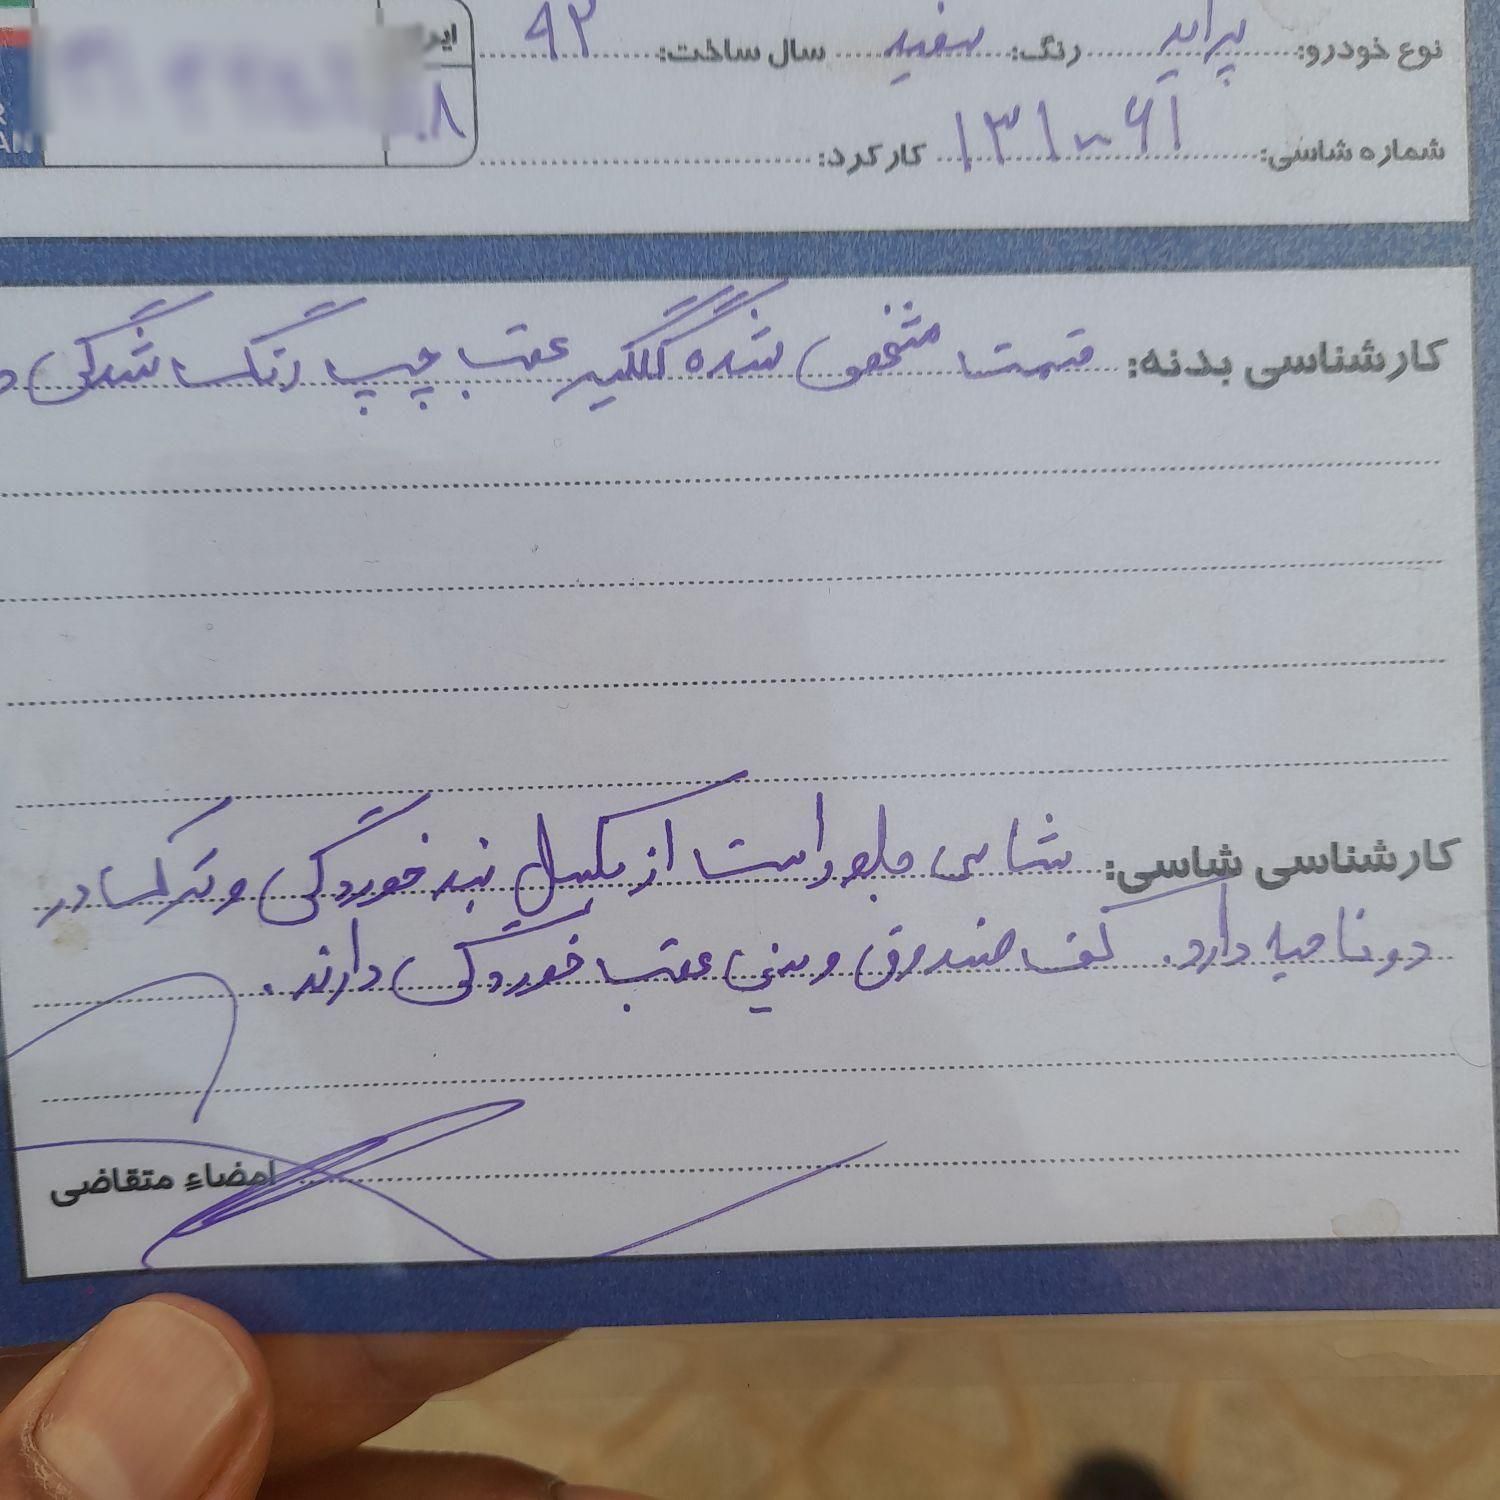 نوع خودرو: پراید رنگ: سفید سال ساخت: ۹۲
شماره شاسی: ۱۳۱۰۰۶۱ کارکرد:
کارشناسی بدنه: قسمت مشخص شده گلگیر عقب چپ رنگ شدگی
کارشناسی شاسی: شاسی جلو راست از بغل نبد خوردگی و ترک در
دو ناحیه دارد. کف صندوق و سینی عقب خوردگی دارند.
امضاء متقاضی